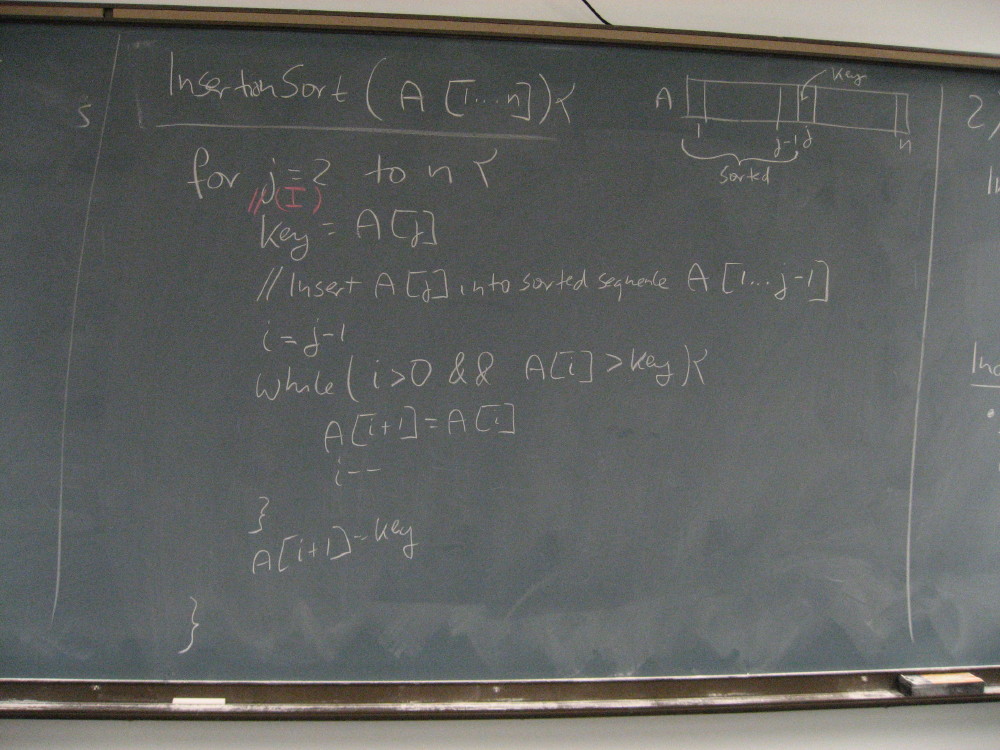 InsertionSort (A [1...n]) {
for j=2 to n {
//(I)
key = A[j]
//Insert A[j] into sorted sequence A [1...j-1]
i = j-1
while (i>0 && A[i] > key) {
A[i+1] = A[i]
i--
}
A[i+1] = key
}
key
A
1 j-1 j n
sorted
5
2,